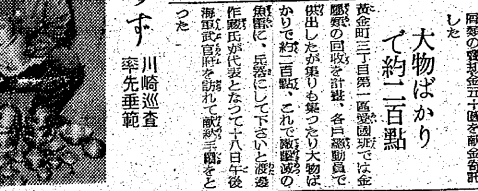 した
大物ばかり
で約二百點
黄金町三丁目第一區愛國班では金
屬類の回收を計畫、各戸總動員で
供出したが集りも集つたり大物ば
かりで約二百點、これで敵撃滅の
魚雷に、兵器にして下さいと渡邊
作藏氏が代表となつて十八日午後
海軍武官府を訪れて獻納手續をと
つた
川崎巡査
率先垂範
す